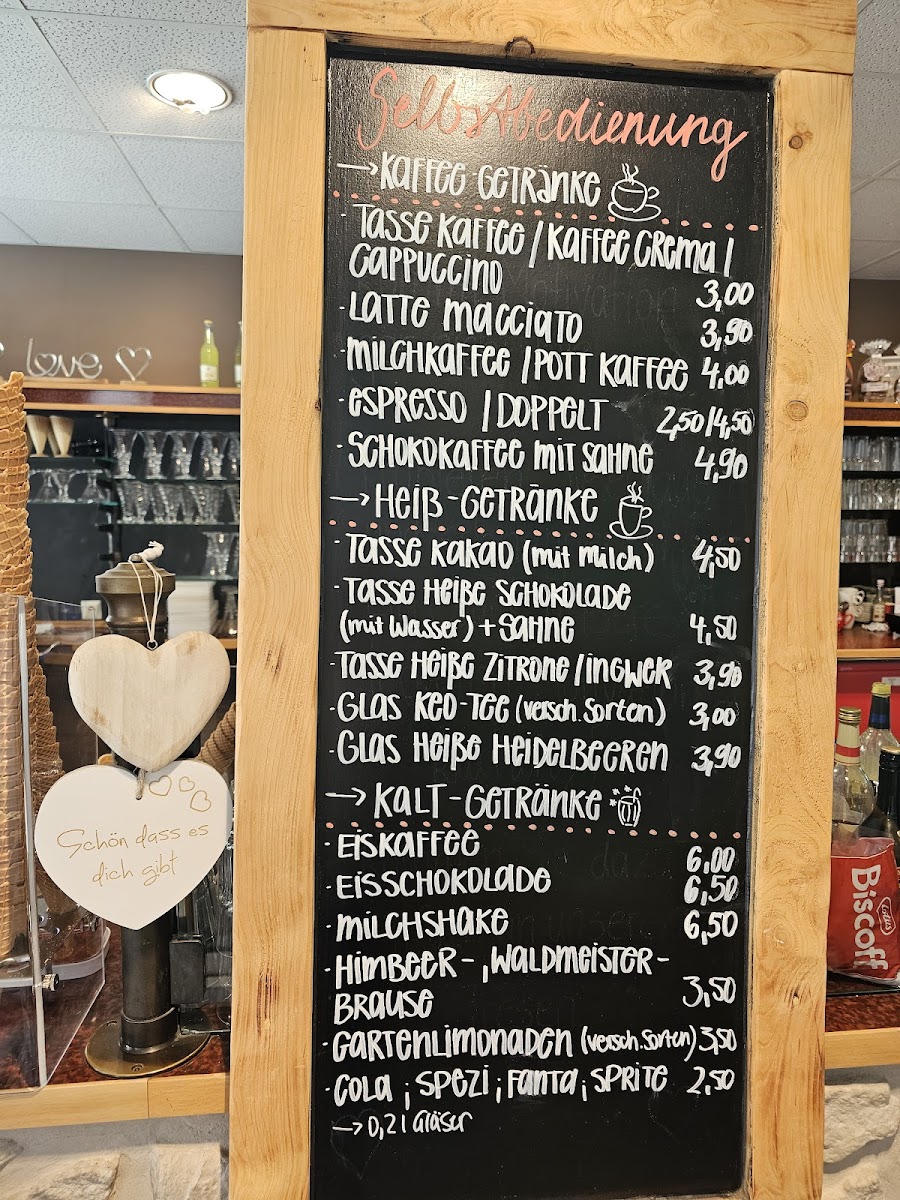 Selbstbedienung
→ Kaffee-Getränke
· Tasse Kaffee / Kaffee Crema /
Cappuccino 3,00
· Latte Macciato 3,90
· Milchkaffee / Pott Kaffee 4,00
· Espresso / Doppelt 2,50/4,50
· Schokokaffee mit Sahne 4,90
→ Heiß-Getränke
· Tasse Kakao (mit Milch) 4,50
· Tasse Heiße Schokolade
(mit Wasser) + Sahne 4,50
· Tasse Heiße Zitrone / Ingwer 3,90
· Glas Keo-Tee (versch. Sorten) 3,00
· Glas Heiße Heidelbeeren 3,90
→ Kalt-Getränke
· Eiskaffee 6,00
· Eisschokolade 6,50
· Milchshake 6,50
· Himbeer-, Waldmeister-
Brause 3,50
· Gartenlimonaden (versch. Sorten) 3,50
· Cola ; Spezi ; Fanta ; Sprite 2,50
→ 0,2 l Gläser
love
Schön dass es
dich gibt
Lotus
Biscoff